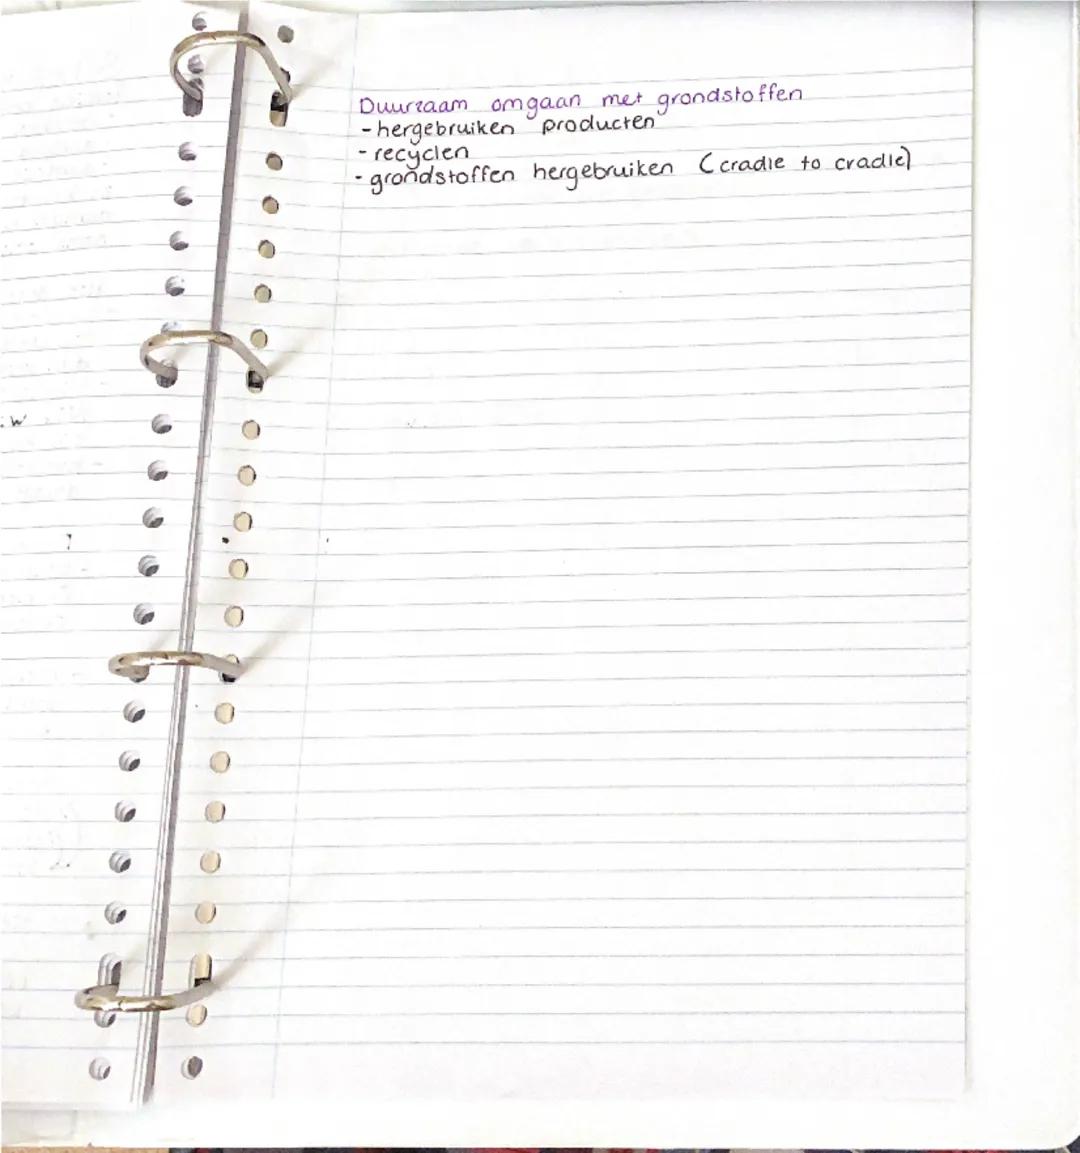 Duurzaam omgaan met grondstoffen
- hergebruiken producten
- recyclen
- grondstoffen hergebruiken (cradle to cradle)